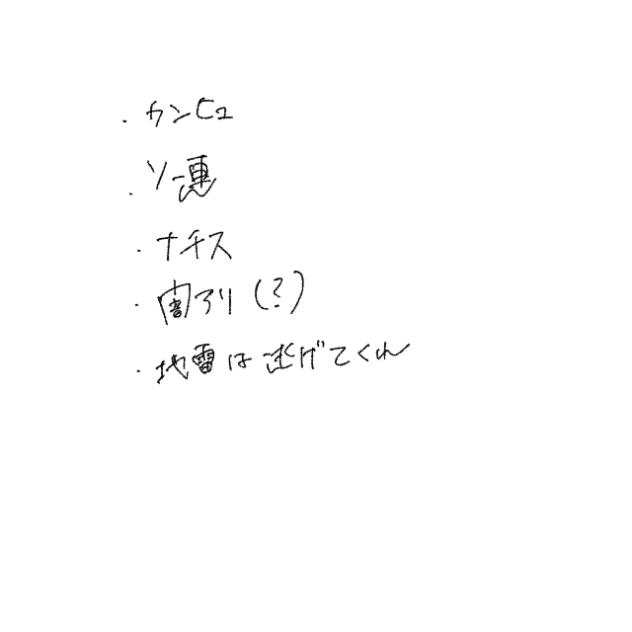 ・カンヒュ
・ソ連
・ナチス
・闇アリ(?)
・地雷は逃げてくれ